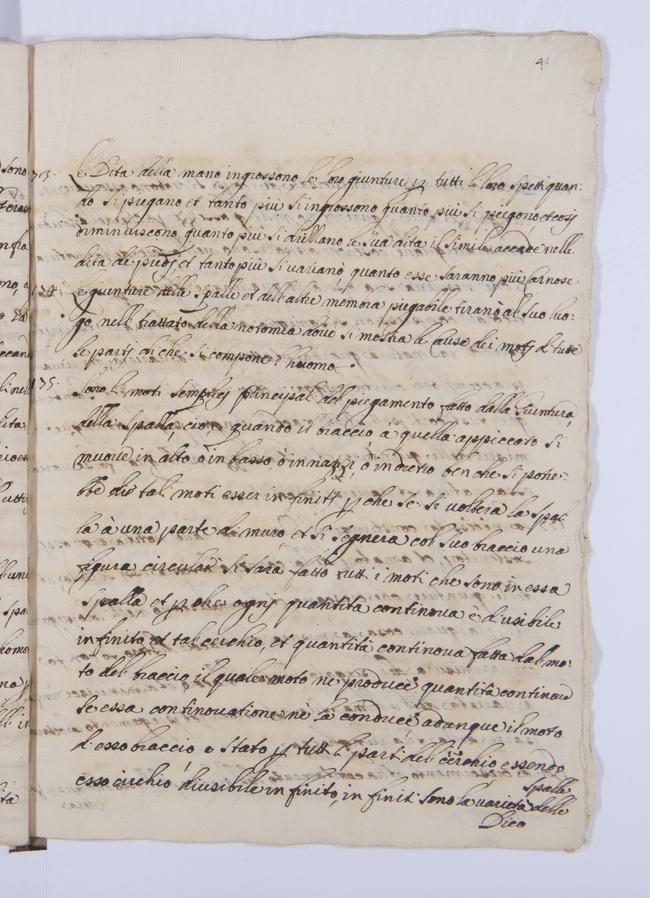 41
173. Le Dita della mano ingrossono le loro giunture p tutti li loro Speti quan-
do si piegano et tanto più si ingrossono quanto più si piegono et cosi
diminuiscono quanto più si il simile accade nelle
dita de piedj et tanto più si variano quanto esse saranno più carnose
174. e giunture della Spalle et dell altre membra piegabile al suo luo-
go nell trattato della notomia doue si mostra le cause dei motj di tutte
le partj di che si compone l huomo.
175. Sono li moti semplicj principali del piegamento fatto dalla Giuntura
della spalla, cioe quando il braccio à quella appiccato si
muoue in alto ò in basso ò innazzi, ò indietro ben che si potre-
bbe dire tali moti esser in finiti p che se si volterà la spal-
la à una parte di muro, et si segnera col suo braccio una
figura circulare si sarà fatto tutti i moti che sono in essa
spalla et p che ognj quantità continova e diuisibile
in finito et tal cerchio, et quantità continova fatta dal mo-
to del braccio il quale moto nè produce quantità continova
se essa continouatione nè la conduce, adunque il moto
d esso braccio e stato p tutte le parti dell cerchio essendo
esso circhio diuisibile in finito, in finiti sono la varietà delle
Spalle
Dico